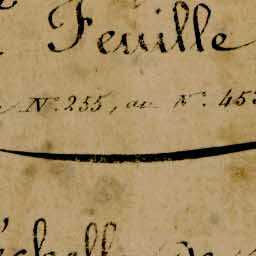 Feuille
N.º 255, au N.º 45
Échelle de